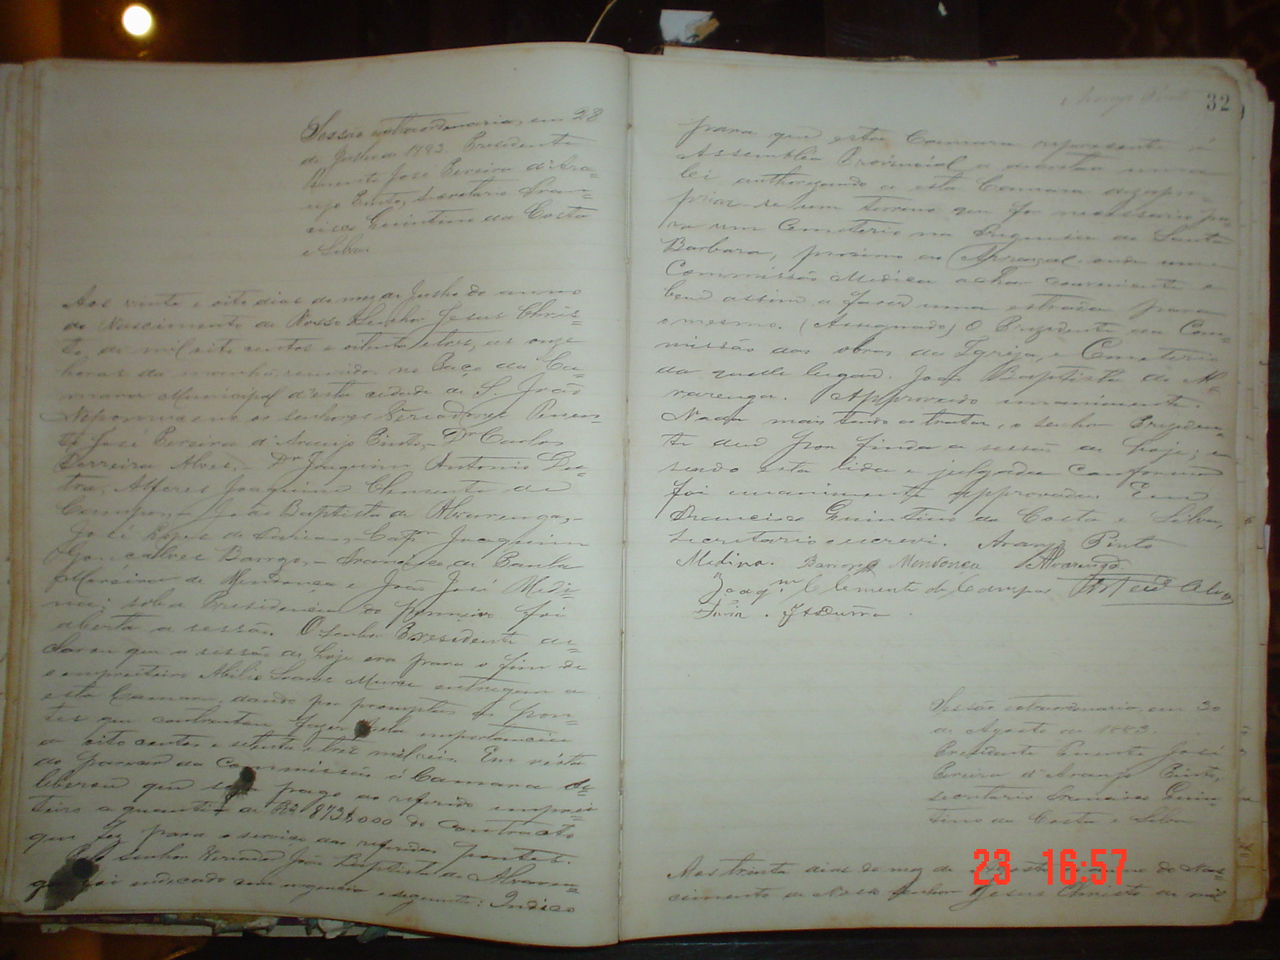 Sessão extraordinaria, em 28
de Junho de 1883. Presidente
Pimenta José Pereira d'Arau-
jo Pinto, Secretario Fran-
cisco Quintino da Costa
e Silva.
Aos vinte e oito dias do mez de Junho do anno
do Nascimento de Nosso Senhor Jesus Chris-
to, de mil oito centos e oitenta e tres, as onze
horas da manhã reunidos no Paço da Ca-
mara Municipal d'esta cidade de S. João
Nepomuceno os senhores Vereadores Pimen-
ta José Pereira d'Araujo Pinto, Dr Carlos
Ferreira Alves, Dr Joaquim Antonio Du-
tra, Alferes Joaquim Clemente de
Campos, João Baptista de Alvarenga,
José Lopes de Capm Joaquim
Gonçalves Barroso, Francisco de Paula
de Mendonça e João José Medi-
na; sob a Presidencia do Primeiro foi
aberta a sessão. O senhor Presidente de-
clarou que a sessão de hoje era para o fim de
o empreiteiro Abilio Soares entregar a
esta Camara, dando por promptas as pon-
tes que contractou fazer pela importancia
de oito centos e setenta e tres mil reis. Em vista
do parecer da Commissão a Camara de-
liberou que pago ao referido emprei-
teiro a quantia de Rs 873$000 do contracto
que fez para o serviço das referidas pontes.
senhor Vereador João Baptista de Alvaren-
ga foi indicado com urgencia o seguinte: Indico
32
para que esta Camara represente á
Assemblea Provincial a decretar uma
lei authorizando a esta Camara dezapro-
priar-se um terreno que for necessario pa-
ra um Cemeterio na Freguesia de Santa
Barbara, proximo ao Arraial onde uma
Commissão Medica achar conveniente e
bem assim a fazer uma estrada para
o mesmo. (Assignado) O Prezidente da Com-
missão das obras da Igreja, e Cemeterio
da quelle lugar. João Baptista de Al-
varenga. Approvado unanimente.
Nada mais tendo a tratar, o senhor Presiden-
te deu por finda a sessão de hoje; e
sendo esta lida e julgada conforme
foi unanimente approvada. Eu
Francisco Quintino da Costa e Silva,
Secretario escrevi. Araujo Pinto
Medina. Barroso Mendonça Alvarenga
Joaqm Clemente de Campos
Sessão extraordinaria, em 30
de Agosto de 1883.
Presidente Pimenta José
Pereira d'Araujo Pinto,
secretario Francisco Quin-
tino da Costa e Silva
Aos trinta dias do mez de Agosto do anno do Nas-
cimento de Nosso Senhor Jesus Christo de mil
23 16:57